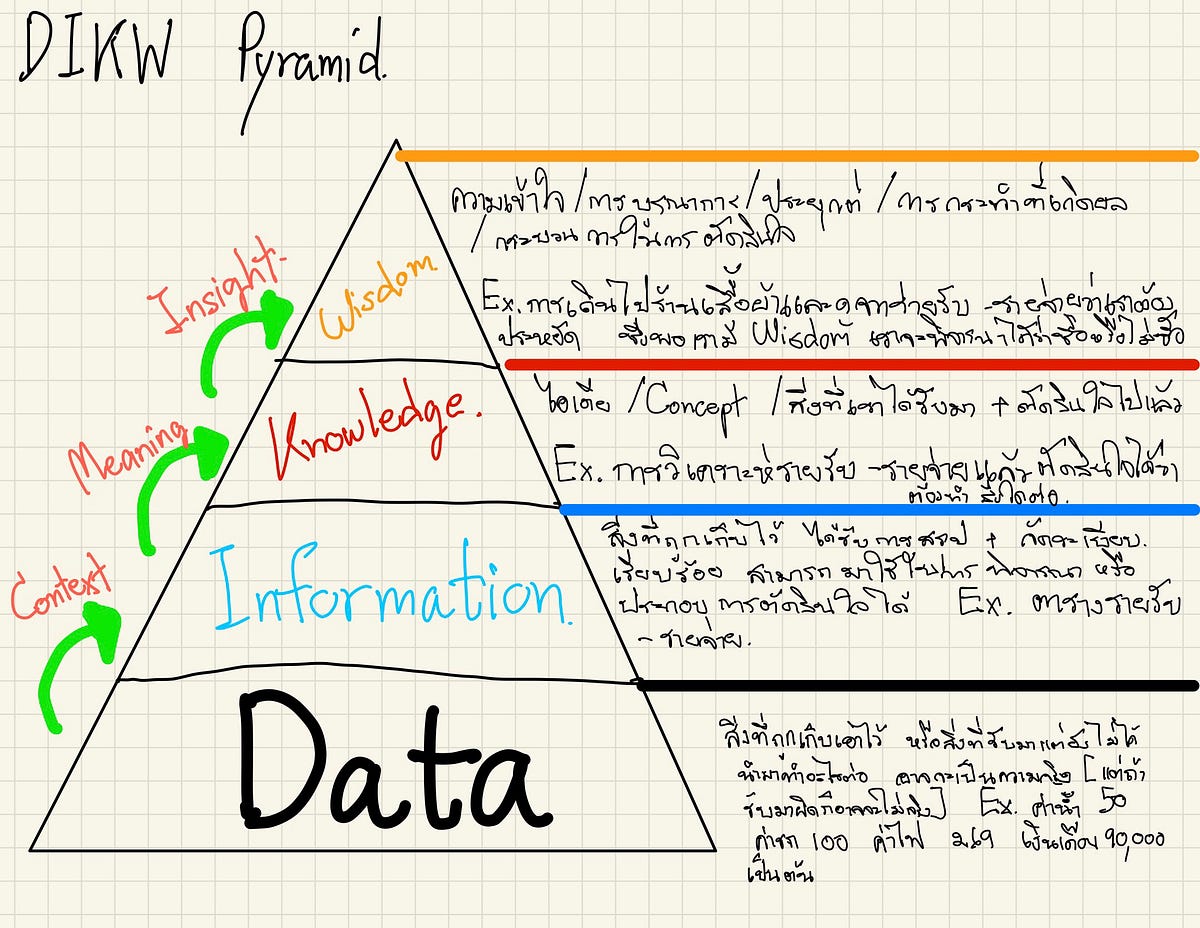 DIKW Pyramid.
ความเข้าใจ / การบูรณาการ / ประยุกต์ / การกระทำที่เกิดผล
/ กระบวนการใช้การตัดสินใจ
Insight
Wisdom.
Ex. การเดินไปร้านเสื้อผ้าและดูจากรายรับ - รายจ่ายว่าเราต้อง
ประหยัด ซึ่งพอเรามี Wisdom เราจะพิจารณาได้ว่าซื้อหรือไม่ซื้อ
Knowledge.
ไอเดีย / Concept / สิ่งที่เอาได้รับมา + ตัดสินใจไปแล้ว
Meaning
Ex. การวิเคราะห์รายรับ - รายจ่ายแล้วตัดสินใจได้ว่า
ต้องทำ สิ่งใดต่อ.
Context
Information.
สิ่งที่ถูกเก็บไว้ ได้รับการสรุป + จัดระเบียบ.
เรียบร้อย สามารถมาใช้ในการ พิจารณา หรือ
ประกอบการตัดสินใจได้ Ex. ตารางรายรับ
- รายจ่าย.
Data
สิ่งที่ถูกเก็บเอาไว้ หรือสิ่งที่รับมาแต่ยังไม่ได้
นำมาทำอะไรต่อ อาจจะเป็นความจริง [แต่ถ้า
รับมาผิดก็อาจจะไม่จริง] Ex. ค่าน้ำ 50
ค่ารถ 100 ค่าไฟ 269 เงินเดือน 90,000
เป็นต้น